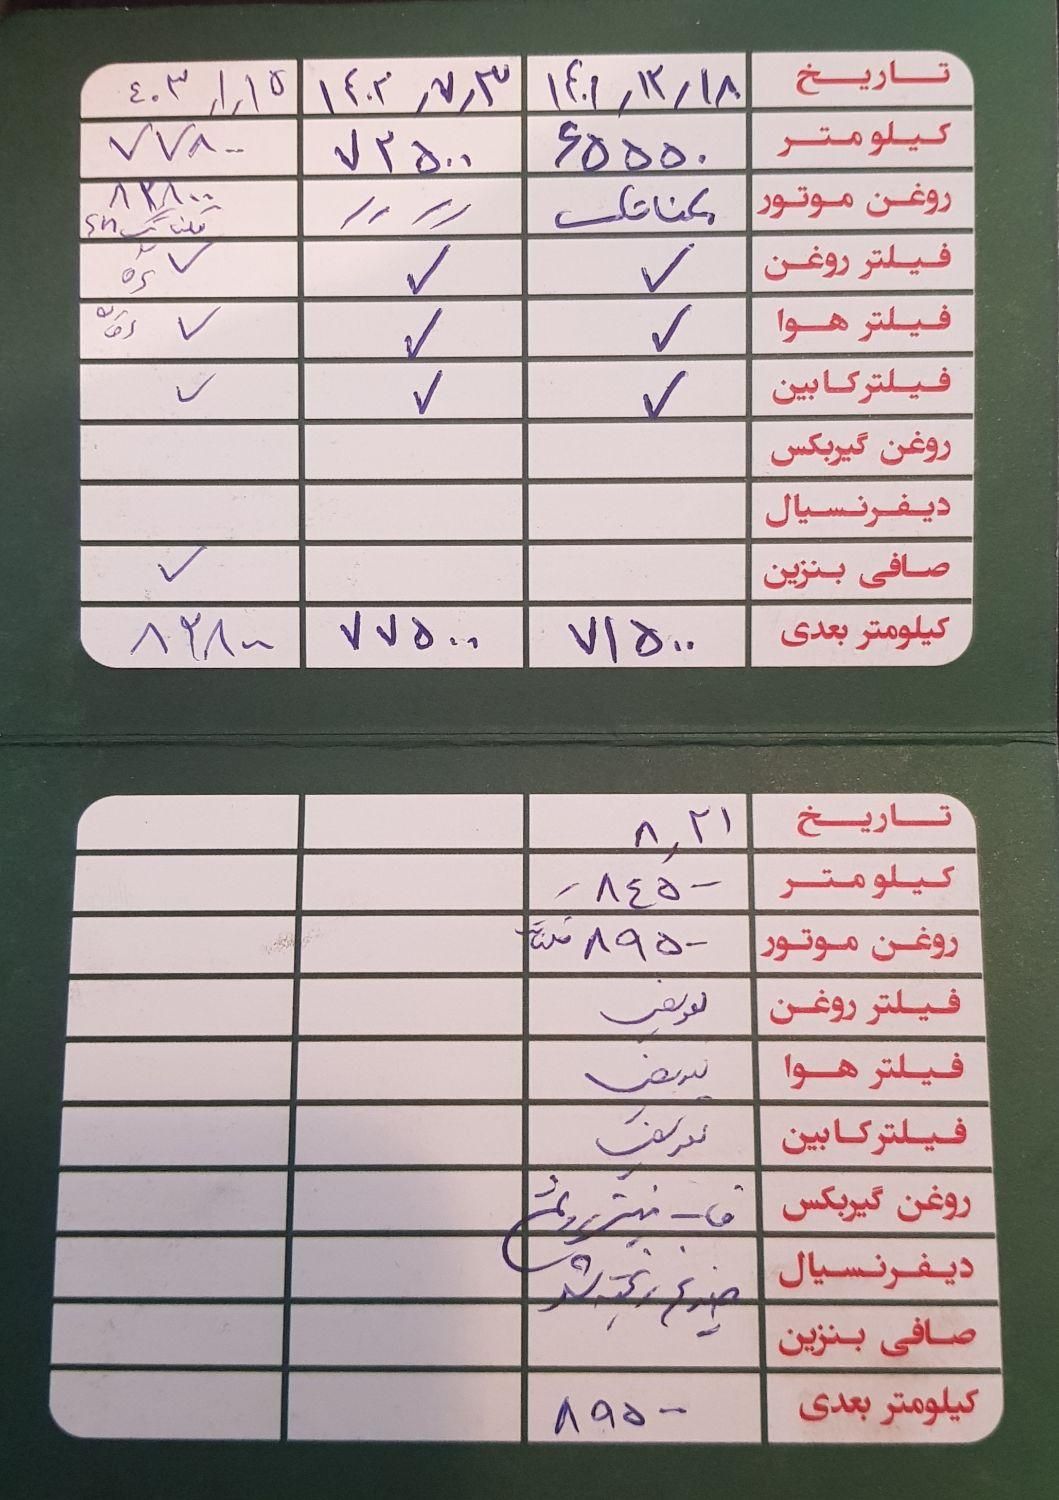 تاریخ ۱۴۰۱/۱۲/۱۸ ۱۴۰۲/۷/۳ ۴۰۳/۱/۱۵
کیلومتر ۶۵۵۵۰ ۷۲۵۰۰ ۷۷۸۰۰
روغن موتور مکناتک // // ۸۲۸۰۰
فیلتر روغن ✓ ✓ ✓
فیلتر هوا ✓ ✓ ✓
فیلتر کابین ✓ ✓ ✓
روغن گیربکس
دیفرنسیال
صافی بنزین ✓
کیلومتر بعدی ۷۱۵۰۰ ۷۷۵۰۰ ۸۲۸۰۰
تاریخ ۸/۲۱
کیلومتر ۸۴۵۰۰
روغن موتور ۸۹۵۰۰
فیلتر روغن تعویض
فیلتر هوا تعویض
فیلتر کابین تعویض
روغن گیربکس
دیفرنسیال
صافی بنزین
کیلومتر بعدی ۸۹۵۰۰